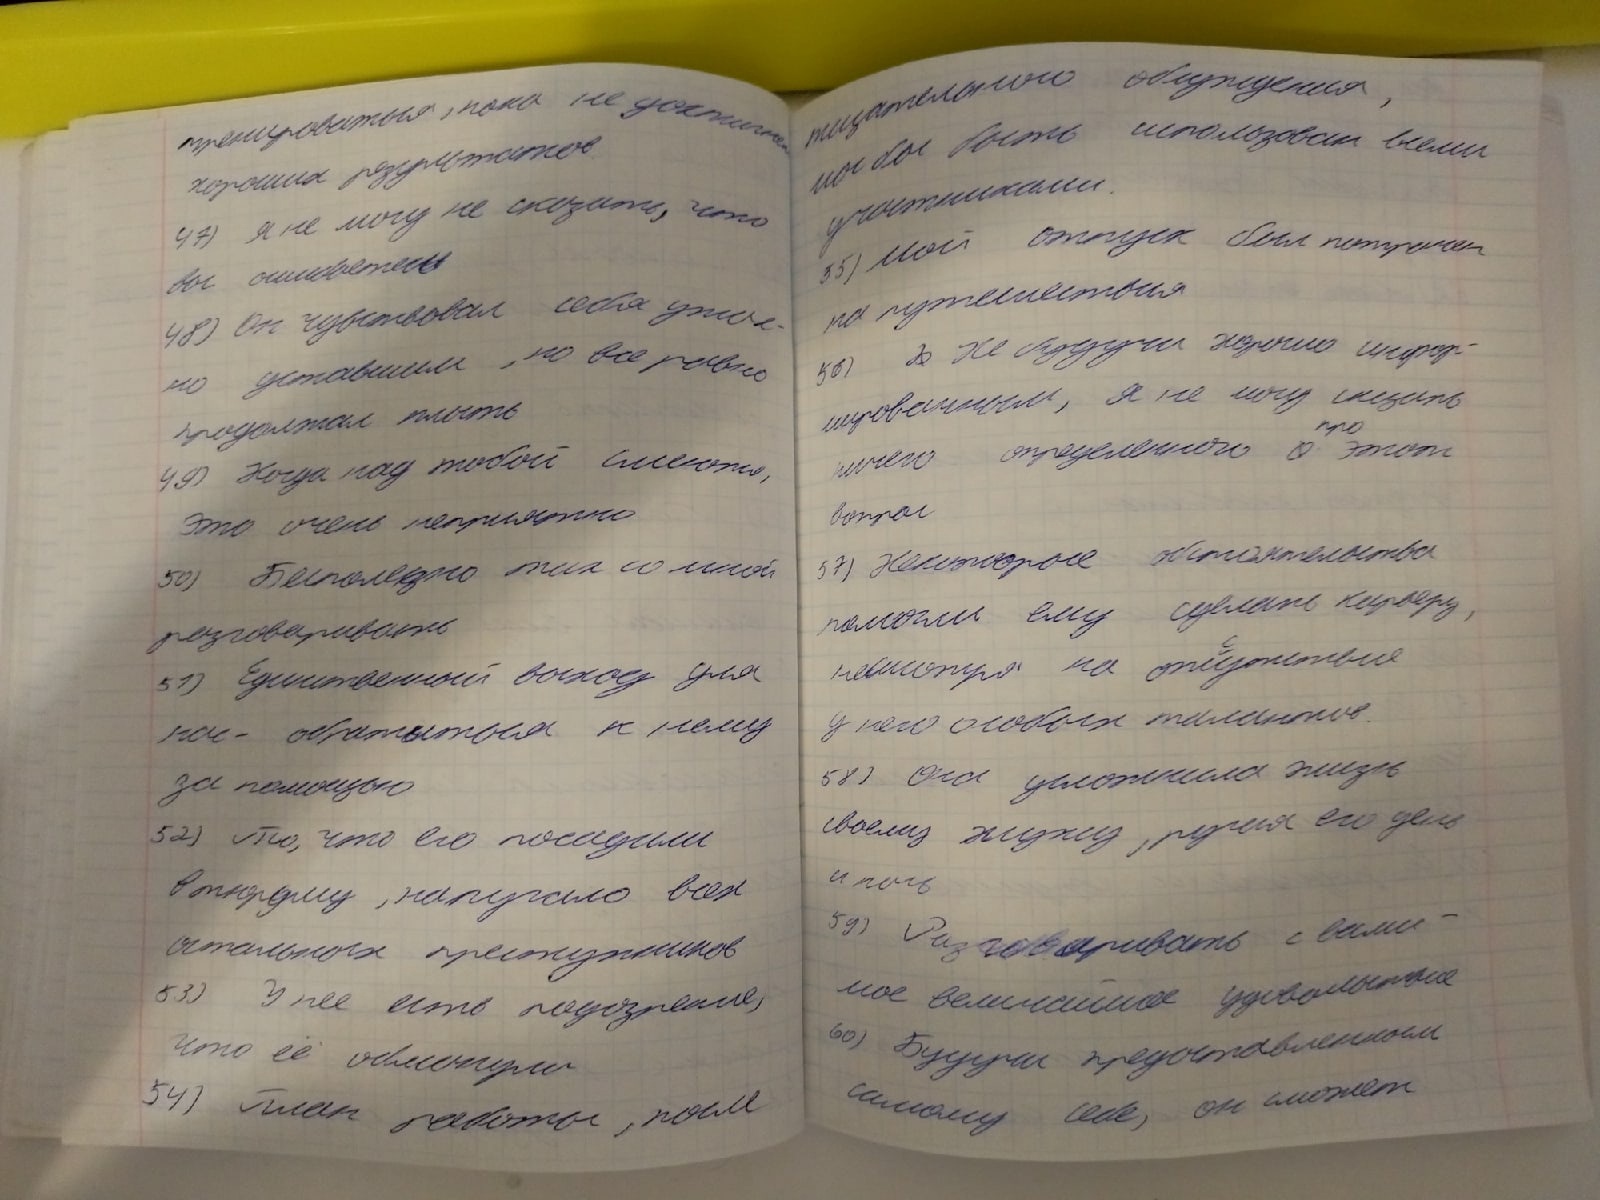 тренироваться, пока не достигнет
хороших результатов
47) Я не могу не сказать, что
вы ошибаетесь
48) Он чувствовал себя ужас-
но уставшим, но все равно
продолжал плыть
49) Когда над тобой смеются,
это очень неприятно
50) Бесполезно так со мной
разговаривать
51) Единственный выход для
нас - обратиться к нему
за помощью
52) То, что его посадили
в тюрьму, напугало всех
остальных преступников
53) У нее есть подозрение,
что её обманули
54) План работы, после
тщательного обсуждения,
мог бы быть использован всеми
участниками.
55) Мой отпуск был потрачен
на путешествия
56) Не будучи хорошо инфор-
мированным, я не могу сказать
ничего определенного про этот
вопрос
57) Некоторые обстоятельства
помогли ему сделать карьеру,
несмотря на отсутствие
у него особых талантов.
58) Она усложнила жизнь
своему мужу, ругая его день
и ночь
59) Разговаривать с вами -
мое величайшее удовольствие
60) Будучи предоставленным
самому себе, он сможет